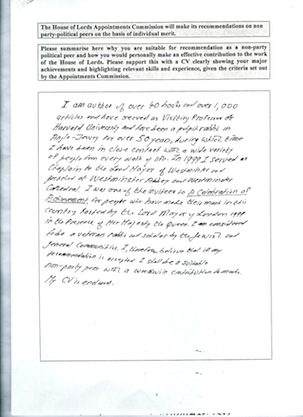 The House of Lords Appointments Commission will make its recommendations on non
party-political peers on the basis of individual merit.
Please summarise here why you are suitable for recommendation as a non-party
political peer and how you would personally make an effective contribution to the work
of the House of Lords. Please support this with a CV clearly showing your major
achievements and highlighting relevant skills and experience, given the criteria set out
by the Appointments Commission.
I am author of over 40 books and over 1,000
articles and have served as Visiting Professor at
Harvard University and have been a pulpit rabbi in
Anglo-Jewry for over 50 years, during which time
I have been in close contact with a wide variety
of people from every walk of life. In 1999 I served as
Chaplain to the Lord Mayor of Westminster and
preached at Westminster Abbey and Westminster
Cathedral. I was one of the invitees to A Celebration of
Achievement for people who have made their mark in this
country hosted by the Lord Mayor of London
in the presence of Her Majesty the Queen. I am considered
to be a veteran rabbi and scholar by the Jewish and
general Communities. I, therefore, believe that if my
recommendation is accepted I shall be a suitable
non-party peer with a contribution to make.
My CV is enclosed.